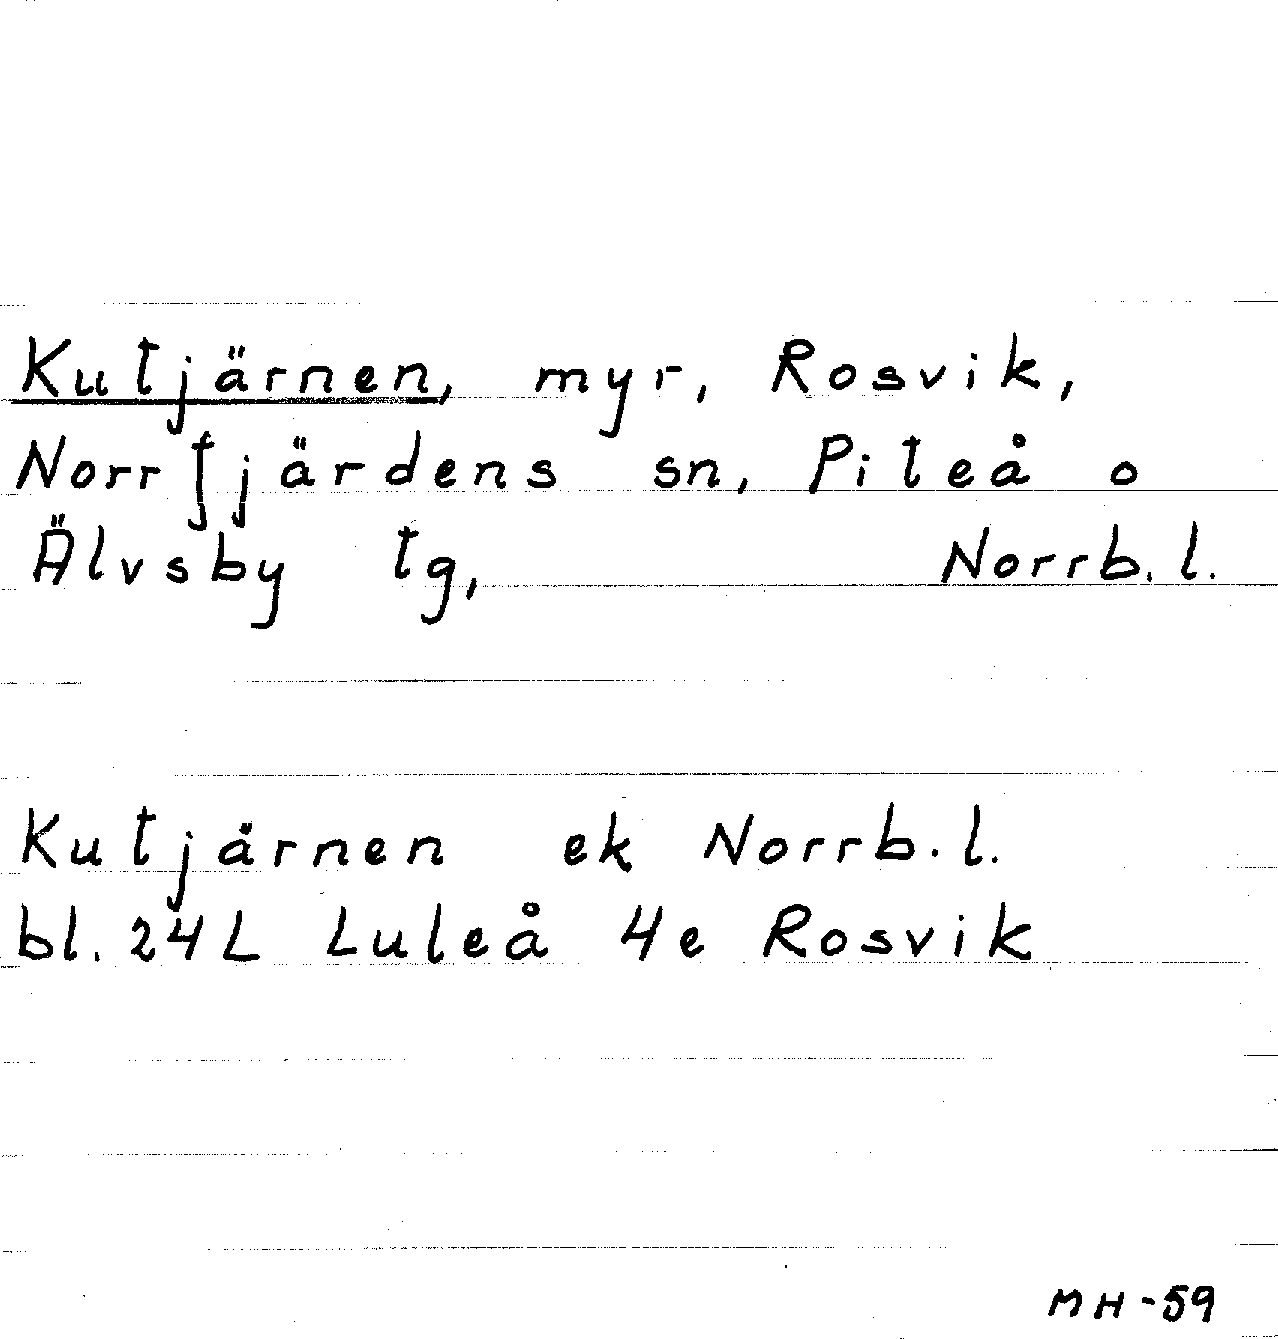 Kutjärnen, myr, Rosvik,
Norrfjärdens sn, Piteå o
Älvsby tg, Norrb.l.
Kutjärnen ek Norrb.l.
bl. 24L Luleå 4e Rosvik
MH-59